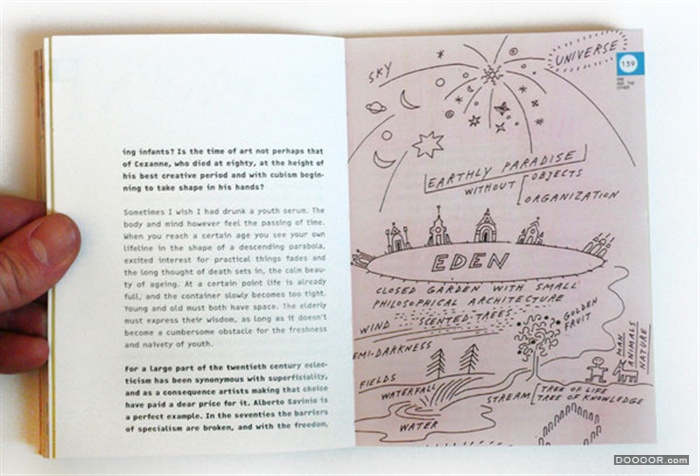 ing infants? Is the time of art not perhaps that
of Cezanne, who died at eighty, at the height of
his best creative period and with cubism begin-
ning to take shape in his hands?
Sometimes I wish I had drunk a youth serum. The
body and mind however feel the passing of time.
When you reach a certain age you see your own
lifeline in the shape of a descending parabola,
excited interest for practical things fades and
the long thought of death sets in, the calm beau-
ty of ageing. At a certain point life is already
full, and the container slowly becomes too tight.
Young and old must both have space. The elderly
must express their wisdom, as long as it doesn't
become a cumbersome obstacle for the freshness
and naivety of youth.
For a large part of the twentieth century eclec-
ticism has been synonymous with superficiality,
and as a consequence artists making that choice
have paid a dear price for it. Alberto Savinio is
a perfect example. In the seventies the barriers
of specialism are broken, and with the freedom,
159
ONE
AND THE
OTHER
UNIVERSE
SKY
EARTHLY PARADISE
WITHOUT OBJECTS
ORGANIZATION
EDEN
CLOSED GARDEN WITH SMALL
PHILOSOPHICAL ARCHITECTURE
WIND SCENTED TREES
GOLDEN
FRUIT
EMI-DARKNESS
MAN
ANIMALS
NATURE
FIELDS
WATERFALL
STREAM TREE OF LIFE
TREE OF KNOWLEDGE
WATER
DOOOOR.com